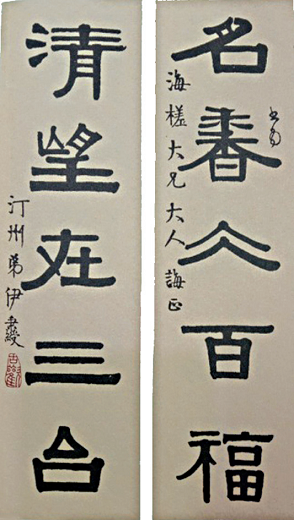 名香百福
海槎大兄大人誨正
清望在三台
汀州弟伊秉綬